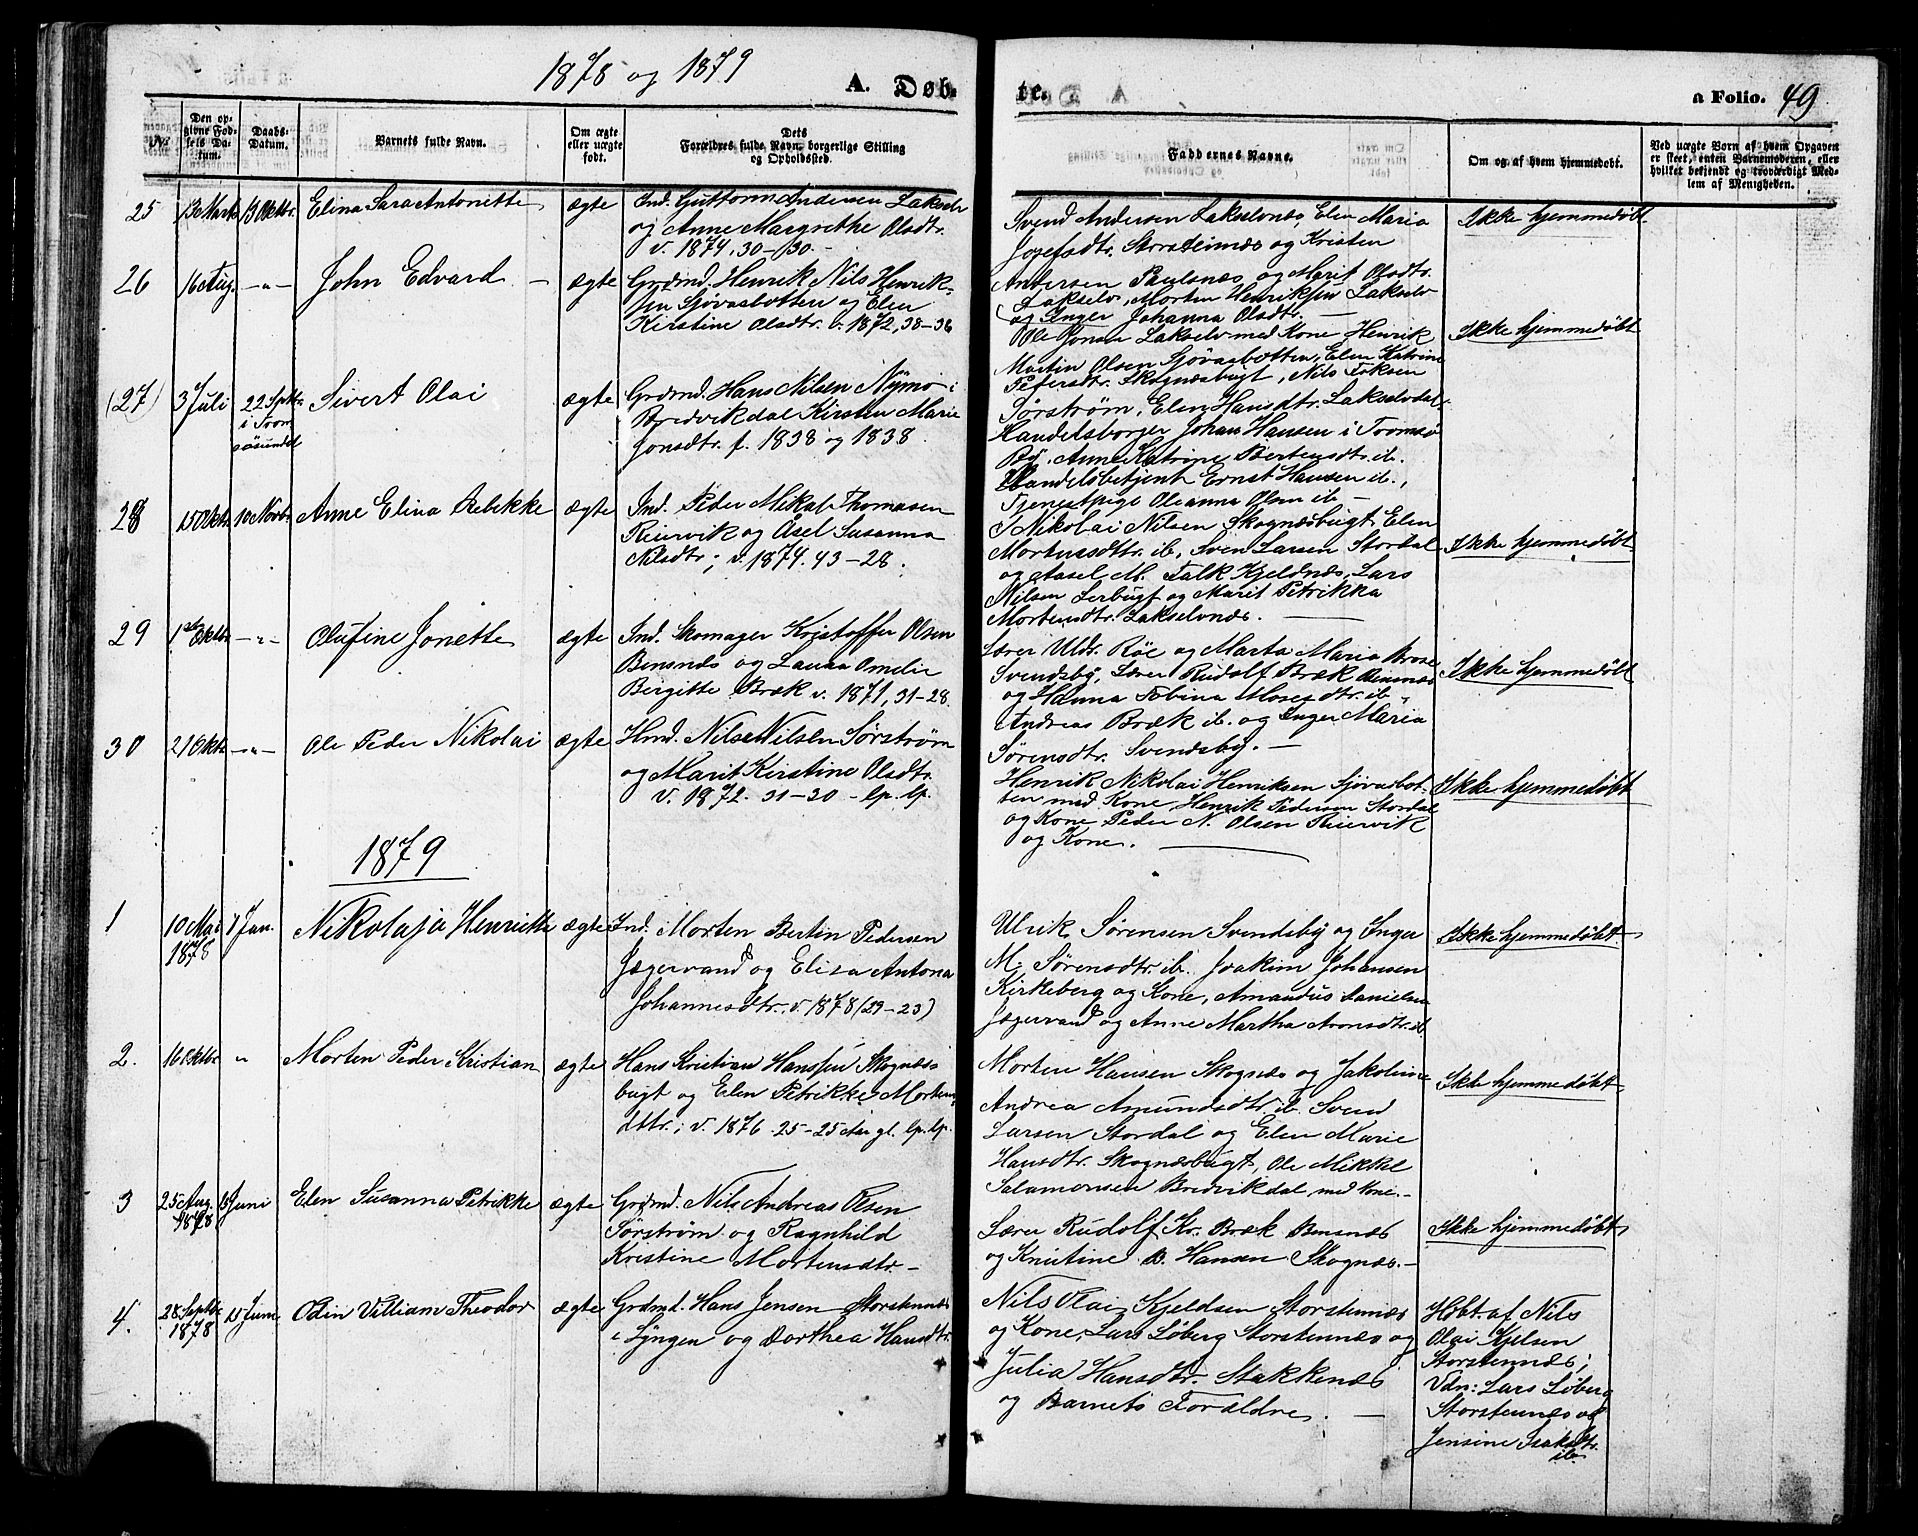 1878 og 1879
A. Døb-
te.
a Folio. 49
No.
Den op-
givne Fød-
sels Da-
tum.
Daabs-
Datum.
Barnets fulde Navn.
Om ægte
eller uægte
født.
Dets
Forældres fulde Navn, borgerlige Stilling
og Opholdssted.
Faddernes Navne.
Om og af hvem hjemmedøbt.
Ved uægte Børn af hvem Opgaven
er skeet, enten Barnemoderen, eller
hvilket bekjendt og troværdigt Med-
lem af Menigheden.
25 13 Oktbr. Elina Sara Antonette ægte Ind. Guttorm Andersen Lakselv
og Anne Margrethe Olsdtr.
v. 1874, 30-30.-
Svend Andersen Lakselvnæs, Elen Maria
Josefsdtr. Storsteinnæs og Kristen
Andersen Paulsnæs og Marit Olsdtr.
Lakselv, Morten Henriksen Lakselv
og Inger Johanna Olsdtr. —
Ikke hjemmedøbt
26 16 Aug. -"- John Edvard - ægte Grdmd. Henrik Nils Henrik-
sen Sjøvasbotten og Elen
Kirstine Olsdtr. v. 1872, 38-36
Ole Jonsen Lakselv med Kone, Henrik
Martin Olsen Sjøvasbotten, Elen Katrine
Pedersdtr. Skognæsbugt, Nils Isaksen
Sørstrøm, Elen Hansdtr. Lakselvdal-
Ikke hjemmedøbt
(27) 3 Juli 22 Septbr.
i Trom-
søsundet
Sivert Olai ægte Grdmd. Hans Nilsen Nymo i
Bredvikdal Kirsten Marie
Jonsdtr. f. 1838 og 1838.
Handelsborger Johan Hansen i Tromsø
By, Anne Katrine Bertensdtr. ib.
Handelsbetjent Ernst Hansen ib.,
Tjenestpige Oleanna Olsen ib —
28 15 Oktbr. 10 Novbr. Anne Elina Rebekke ægte Ind. Peder Mikal Thomasen
Reiervik og Åsel Susanna
Nilsdtr; v. 1874. 43-28.
Nikolai Nilsen Skognæsbugt, Elen
Mortensdtr. ib, Sven Larsen Stordal
og Aasel M. Falk Kjeldnæs, Lars
Nilsen Lerbugt og Marit Petrikka
Mortensdtr. Lakselvnæs. —
Ikke hjemmedøbt
29 1ste Oktbr. -"- Olufine Jonette ægte Ind. Skomager Kristoffer Olsen
Bensnæs og Laura Amelie
Birgitte Bræk v. 1871, 31-28.
Lærer Uldr. Röe og Marta Maria
Svendsby, Lærer Rudolf Bræk Bensnæs
og Hanna Tobina Mosesdtr. ib,
Andreas Bræk ib. og Inger Maria
Sørensdtr. Svendsby. —
Ikke hjemmedøbt
30 21 Oktbr. -"- Ole Peder Nikolai ægte Hmd. Nils Nilsen Sørstrøm
og Marit Kirstine Olsdtr.
v. 1872. 31-30 - lp. lp.
Henrik Nikolai Henriksen Sjøvasbot-
ten med Kone, Henrik Pedersen Stordal
og Kone Peder N. Olsen Reiervik
og Kone. —
Ikke hjemmedøbt
1879
1 10 Mai
1878
1 Jan. Nikolaja Henriette ægte Ind. Morten Bertin Pedersen
Jægervand og Elisa Antona
Johannesdtr. v. 1878 (29-23)
Ulrik Sørensen Svendsby og Inger
M. Sørensdtr. ib. Joakim Johansen
Kirkeberg og Kone, Amandus Danielsen
Jægervand og Anne Martha Aronsdtr. ib.
Ikke hjemmedøbt
2. 16 Oktbr. " Morten Peder Kristian ægte Hans Kristian Hanssen Skognæs-
bugt og Elen Petrikke Morten-
dttr.; v. 1876. 25-25 Aar gl. lp. lp.
Morten Hansen Skognæs og Jakobine
Andrea Amundsdtr. ib. Svend
Larsen Stordal og Elen Marie
Hansdtr. Skognæsbugt, Ole Mikkel
Salamonsen Bredvikdal med Kone. -
Ikke hjemmedøbt
3 25 Aug.
1878
Juni Elen Susanna Petrikke ægte Grdmd. Nils Andreas Olsen
Sørstrøm og Ragnhild
Kristine Mortensdtr. -
Lærer Rudolf Kr. Bræk Bensnæs
og Knutine B. Hansen Skognæs. -
Ikke hjemmedøbt
4. 28 Septbr.
1878
15 Juni Odin Villiam Theodor ægte Grdmd. Hans Jensen Storstennæs
i Lyngen og Dorthea Hansdtr.
Nils Olai Kjeldsen Storstennæs
og Kone, Lars Løberg Storstennæs og
Julia Hansdtr. Stakkenæs
og Barnets Forældre. —
Hdbt. af Nils
Olai Kjelsen
Storstennæs;
Vdn: Lars Løberg
Storstennæs og
Jensine Isaksdtr.
ib.